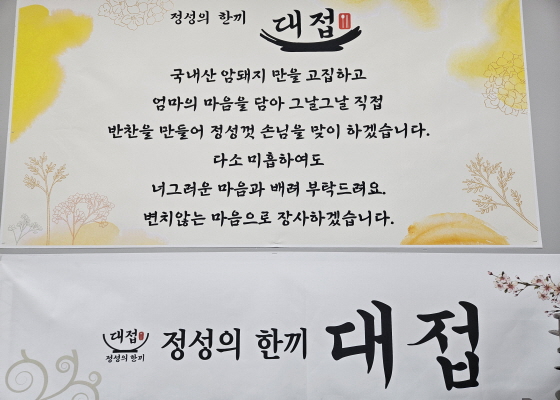 정성의 한끼 대접
국내산 암돼지 만을 고집하고
엄마의 마음을 담아 그날그날 직접
반찬을 만들어 정성껏 손님을 맞이 하겠습니다.
다소 미흡하여도
너그러운 마음과 배려 부탁드려요.
변치않는 마음으로 장사하겠습니다.
대접
정성의 한끼
정성의 한끼 대접